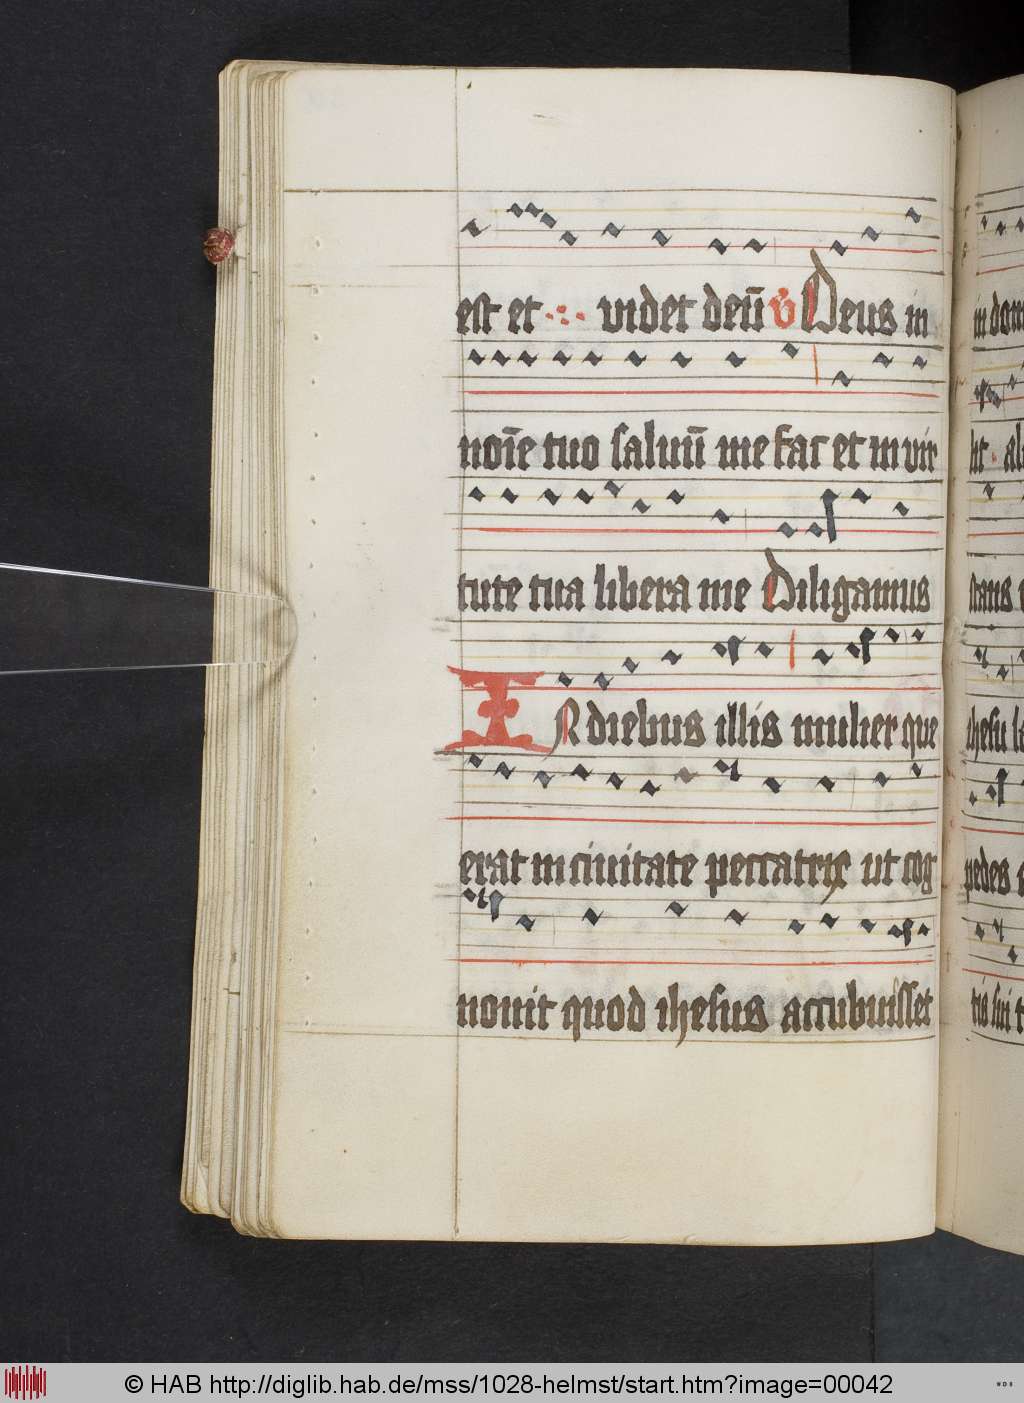 est et ⁘ videt deū v̄ Deus in
noīe tuo saluū me fac et in vir
tute tua libera me Diligamus
IN diebus illis mulier que
erat in ciuitate peccatrix ut cog
nouit quod ihesus accubuisset
in dom
ihesu
pedes
tis sui
© HAB http://diglib.hab.de/mss/1028-helmst/start.htm?image=00042